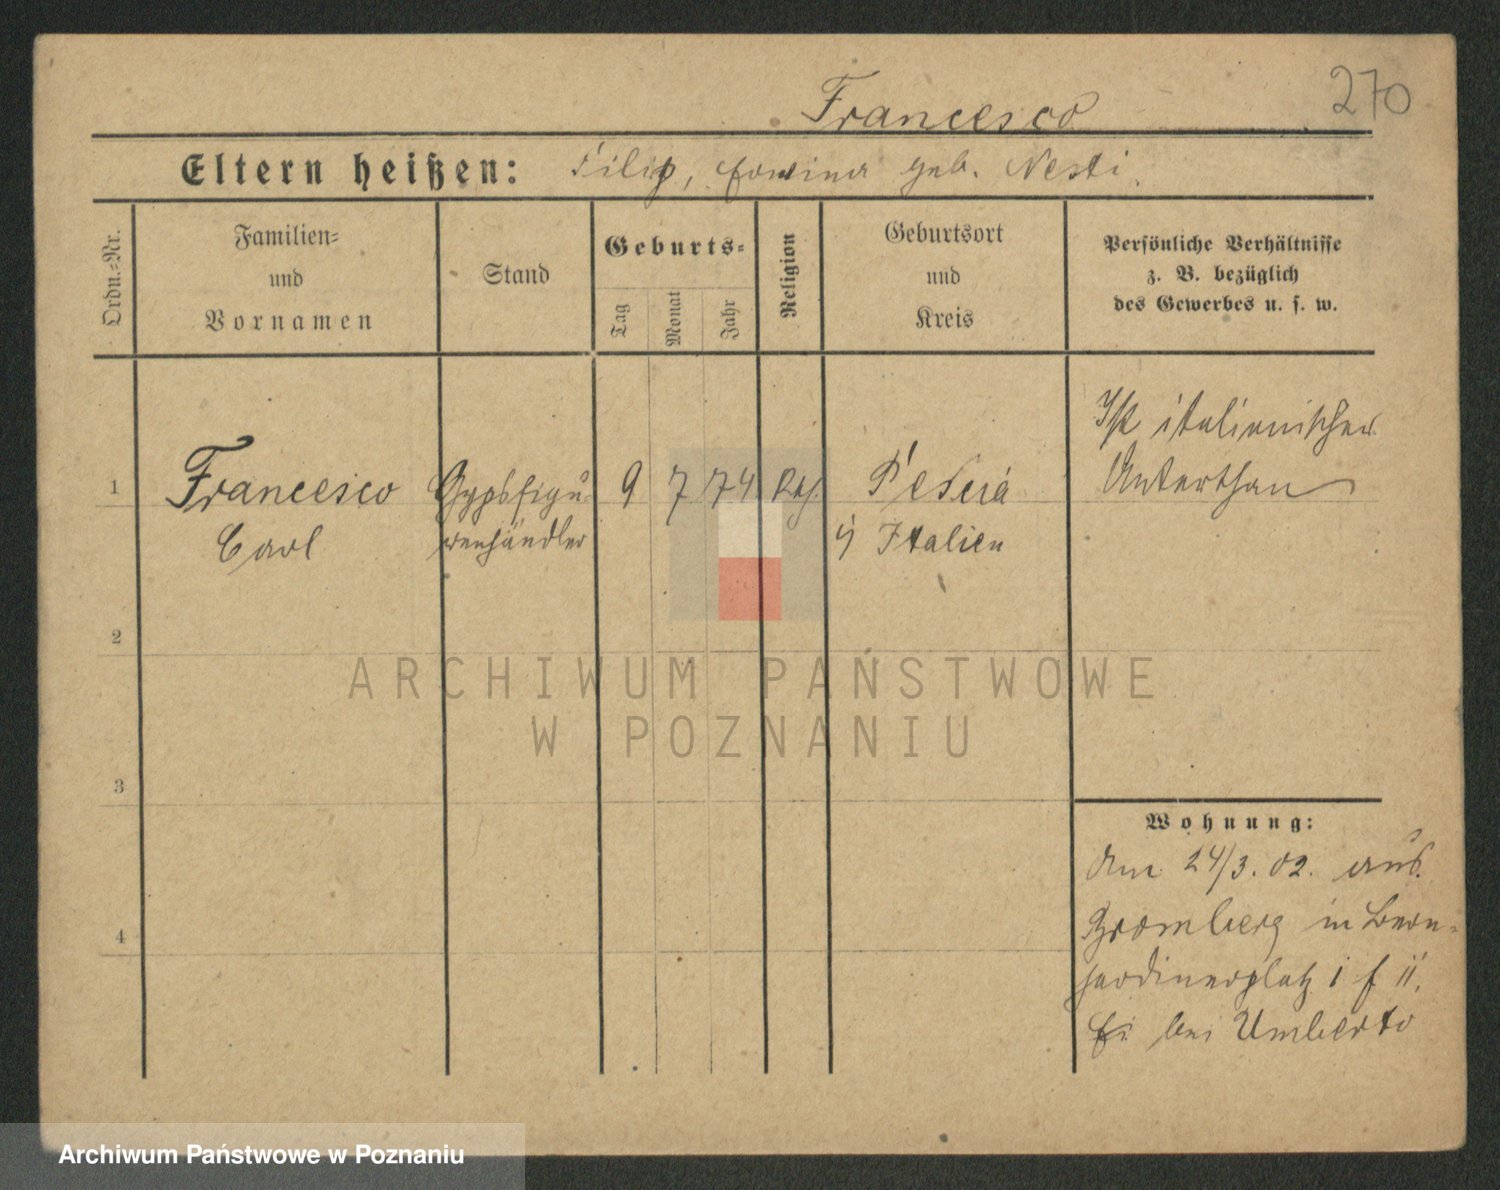 270
Francesco
Eltern heißen: Filip, geb. Nesti
Ordn.-Nr.
Familien-
und
Vornamen
Stand
Geburts-
Tag
Monat
Jahr
Religion
Geburtsort
und
Kreis
Persönliche Verhältnisse
z. B. bezüglich
des Gewerbes u. s. w.
1
Francesco
Carl
Gypsfigu-
renhändler
9
7
74
Kath.
Pescia
Italien
Ist italienischer
Unterthan
2
3
4
Wohnung:
Am 24/3. 02. aus
Bromberg in Bern-
hardinerplatz
bei Umberto
ARCHIWUM PAŃSTWOWE
W POZNANIU
Archiwum Państwowe w Poznaniu